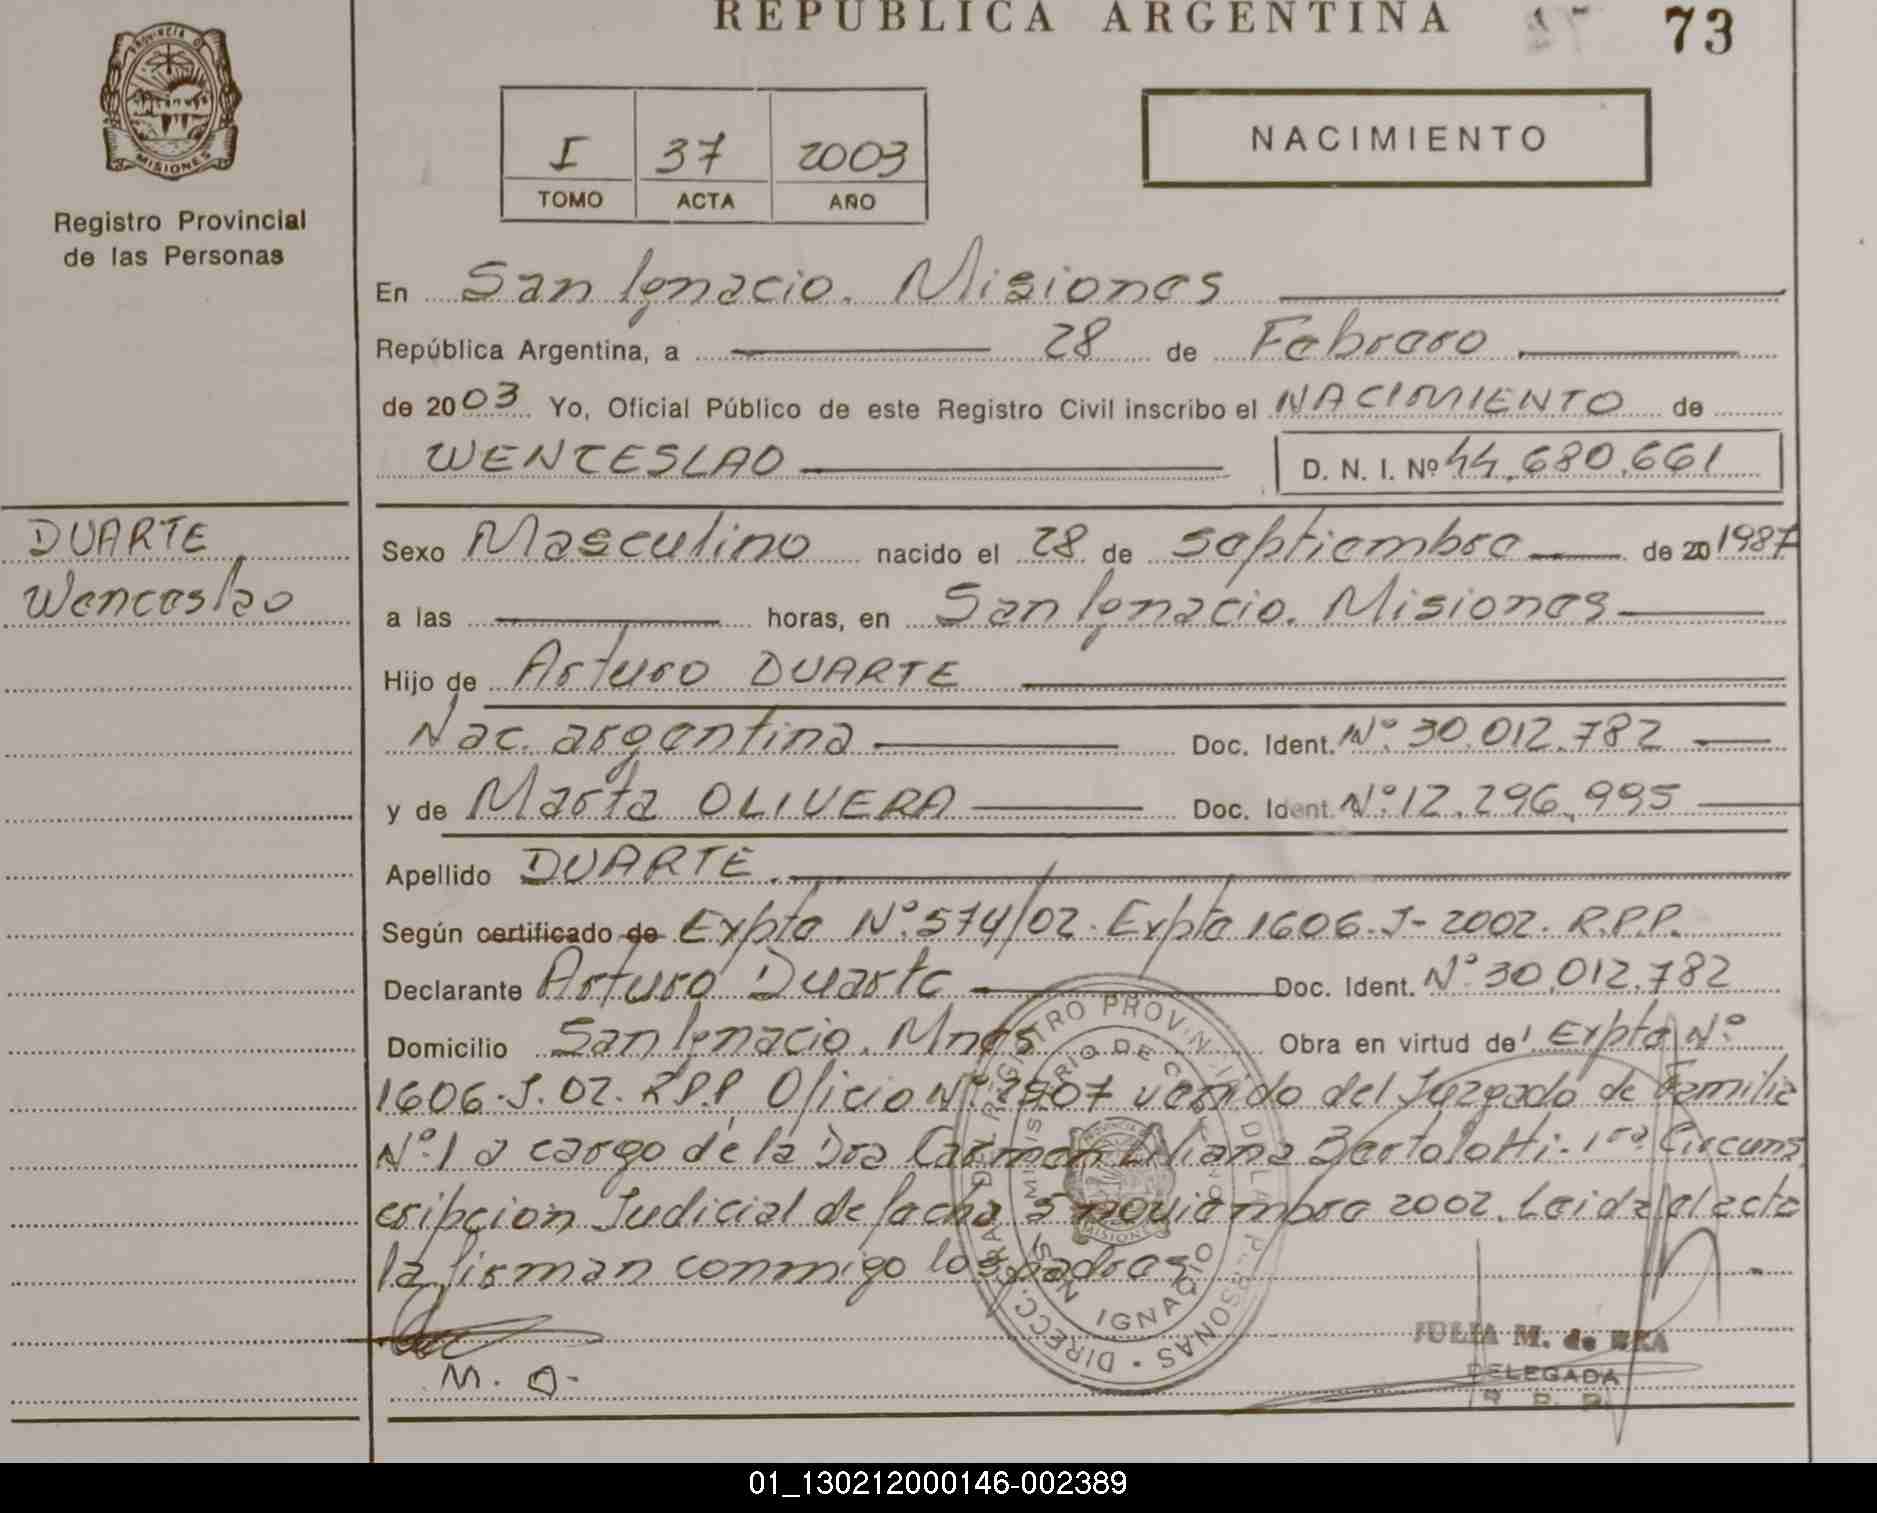 REPUBLICA ARGENTINA 73
PROVINCIA DE
MISIONES
Registro Provincial
de las Personas
I 37 2003
TOMO ACTA AÑO
NACIMIENTO
En San Ignacio. Misiones
República Argentina, a 28 de Febrero
de 2003 Yo, Oficial Público de este Registro Civil inscribo el NACIMIENTO de
WENCESLAO D. N. I. Nº 44.680.661
DUARTE
Wenceslao
Sexo Masculino nacido el 28 de septiembre de 20 1987
a las horas, en San Ignacio. Misiones
Hijo de Arturo DUARTE
Nac. argentina Doc. Ident. Nº 30.012.782
y de Marta OLIVERA Doc. Ident. Nº 12.296.995
Apellido DUARTE.
Según certificado de Expte Nº 574/02. Expte 1606-J-2002. R.P.P.
Declarante Arturo Duarte Doc. Ident. Nº 30.012.782
Domicilio San Ignacio. Mnes Obra en virtud de Expte Nº
1606-J.02. R.P.P Oficio Nº 2907 venido del Juzgado de Familia
Nº 1 a cargo de la Dra Carmen Liliana Bertolotti. 1ra. Circuns
cripcion Judicial de fecha 5 noviembre 2002. Leida el acta
la firman conmigo los padres
M. O.
SAN IGNACIO
JULIA M. de REA
DELEGADA
R. P. P.
01_130212000146-002389